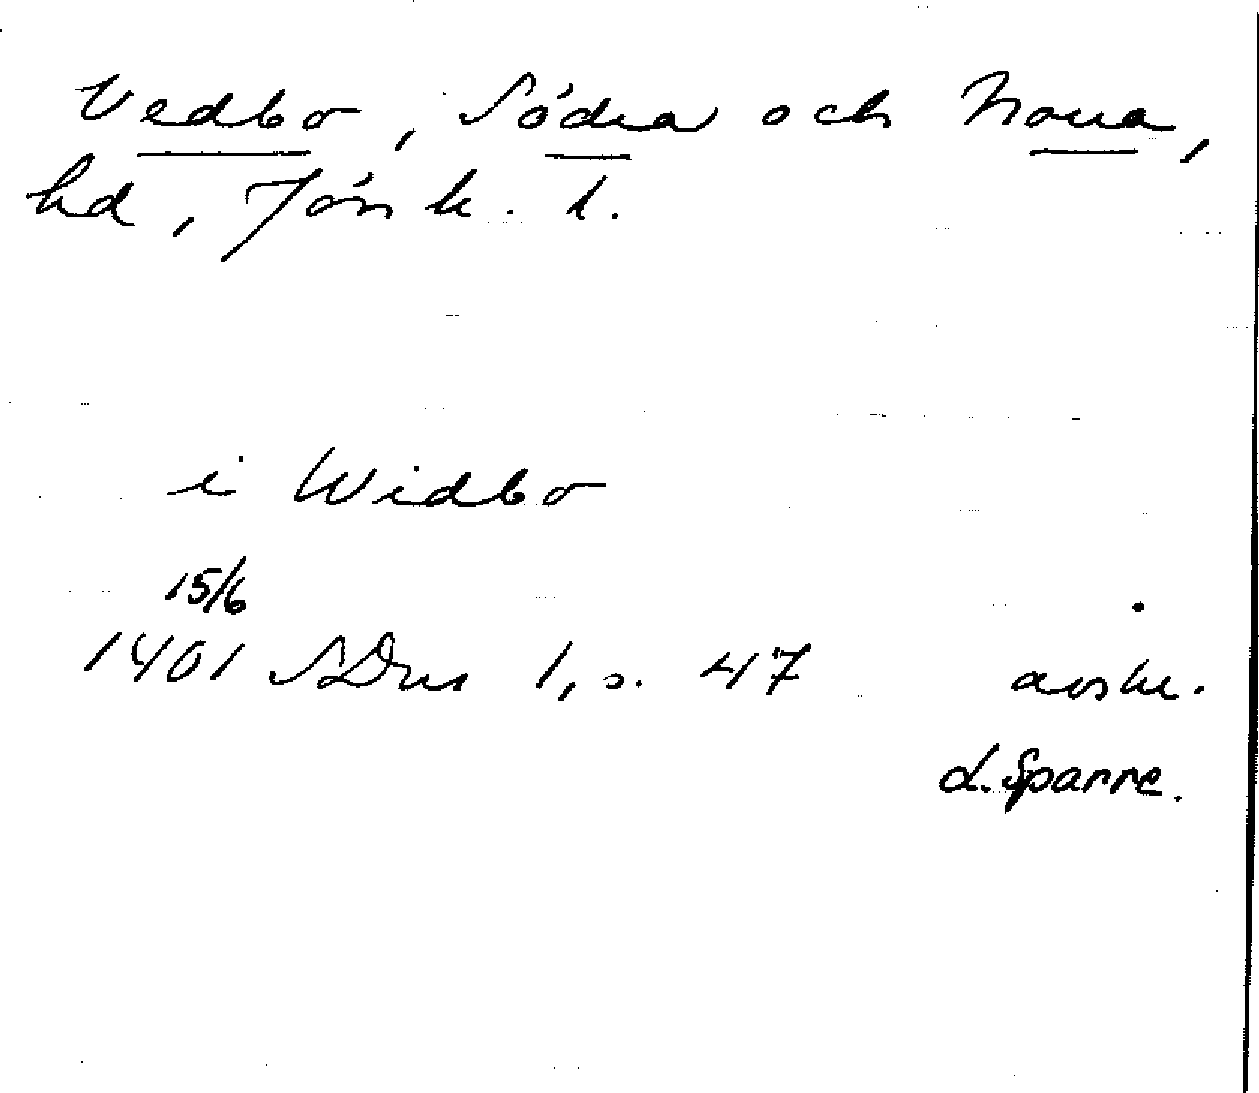 Vedbo, Södra och Norra,
hd, Jönk. l.
i Widbo
15/6
1401 SDns 1, s. 47 avskr.
d. Sparre.